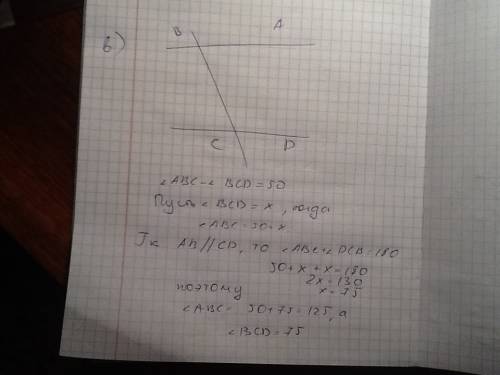 б)
B A
C D
∠ABC-∠BCD=50
Пусть ∠BCD=x, тогда
∠ABC=50+x
Тк AB//CD, то ∠ABC+∠DCB=180
50+x+x=180
2x=130
x=75
поэтому
∠ABC= 50+75=125, а
∠BCD=75